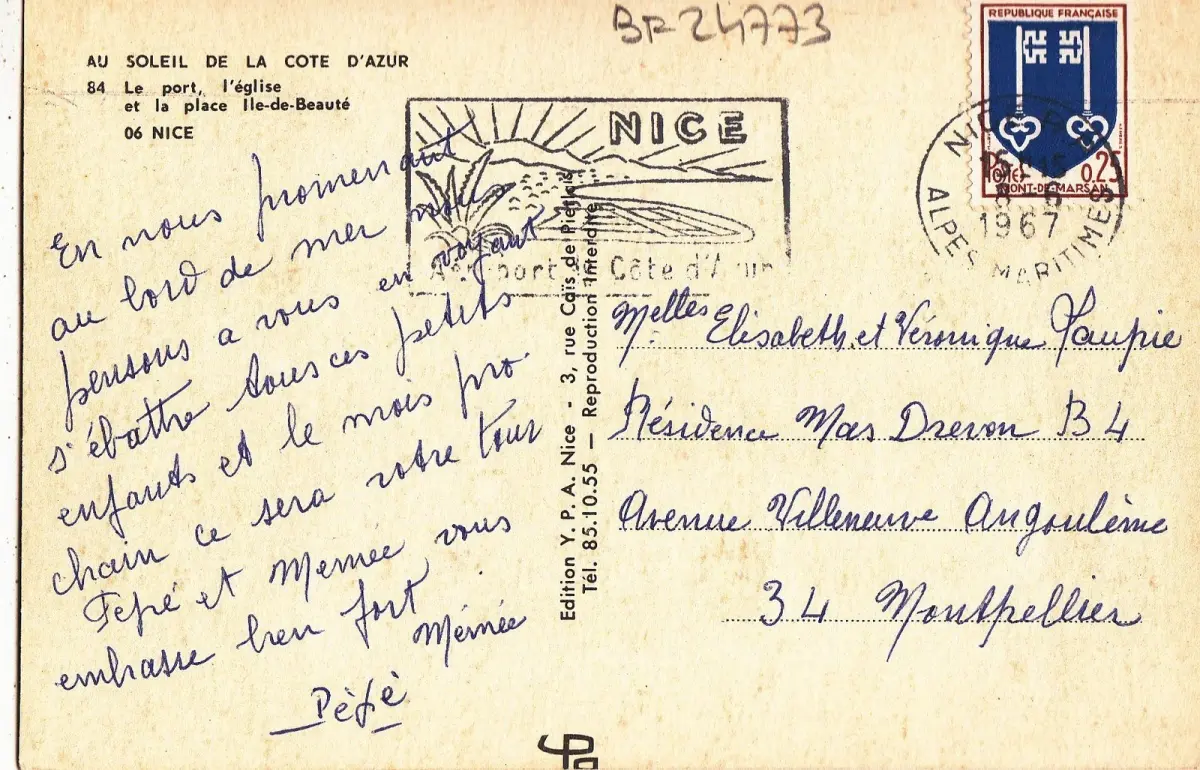 BF 24773
AU SOLEIL DE LA COTE D'AZUR
84 Le port, l'église
et la place Ile-de-Beauté
06 NICE
En nous promenant
au bord de mer nous
pensons a vous en voyant
s'ébattre tous ces petits
enfants et le mois pro-
chain ce sera votre tour
Pépé et Mémée vous
embrasse bien fort
Mémée
Pépé
NICE
Aéroport Côte d'Azur
Edition Y. P. A. Nice - 3, rue Caïs de Pierlas
Tél. 85.10.55 — Reproduction Interdite
REPUBLIQUE FRANÇAISE
POSTES 0,25
MONT-DE-MARSAN
NICE
1967
ALPES MARITIMES
Melles Elisabeth et Véronique Taupie
Résidence Mas Drevon B4
Avenue Villeneuve Angoulème
34 Montpellier